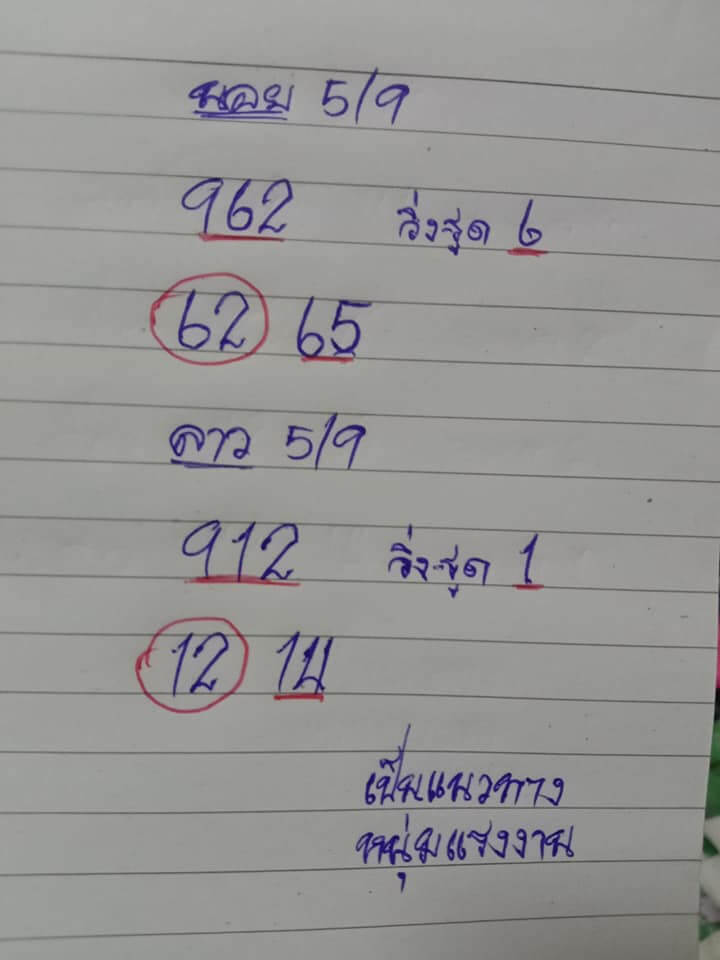 นอย 5/9
962 วิ่งรูด 6
62 65
ลาว 5/9
912 วิ่งรูด 1
12 14
เป็นแนวทาง
หนุ่มแรงงาน